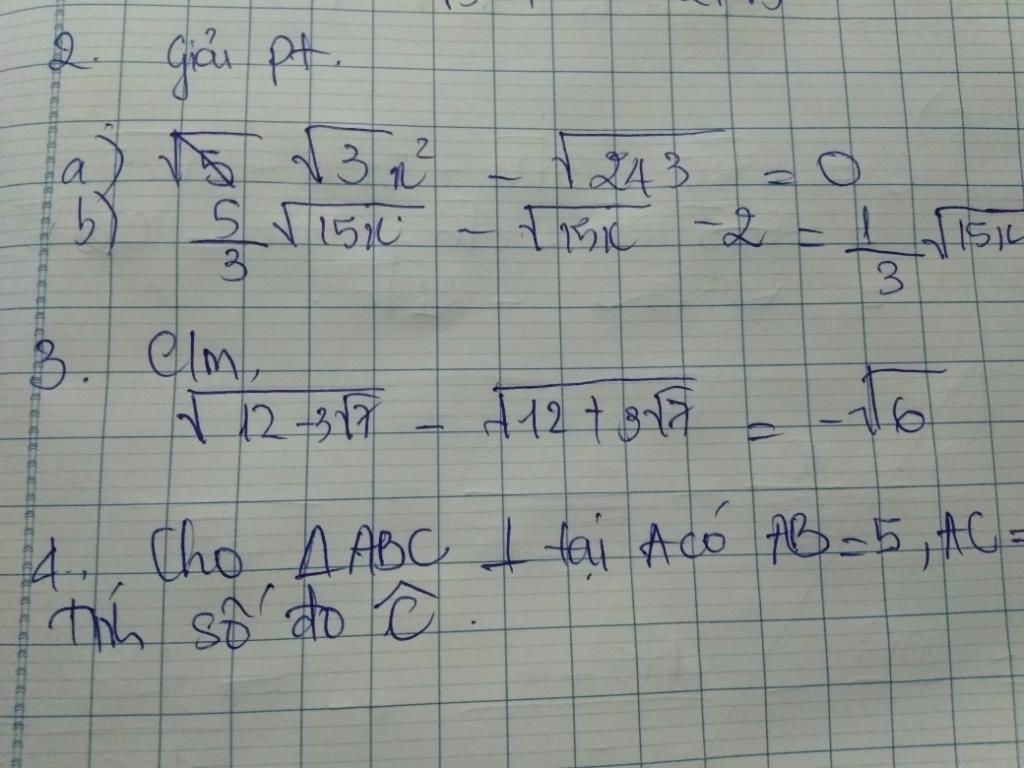 2. Giải pt.
a) √3 x² - √243 = 0
b) 5/3 √15x - √15x - 2 = 1/3 √15x
3. C/m,
√12 - 3√7 - √12 + 3√7 = -√6
4. Cho ΔABC ⊥ tại A có AB = 5, AC =
Tính số đo Ĉ.